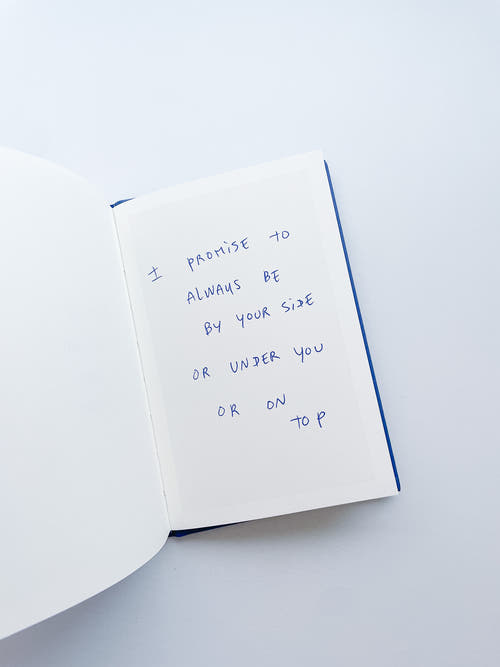 I PROMISE TO
ALWAYS BE
BY YOUR SIDE
OR UNDER YOU
OR ON
TOP